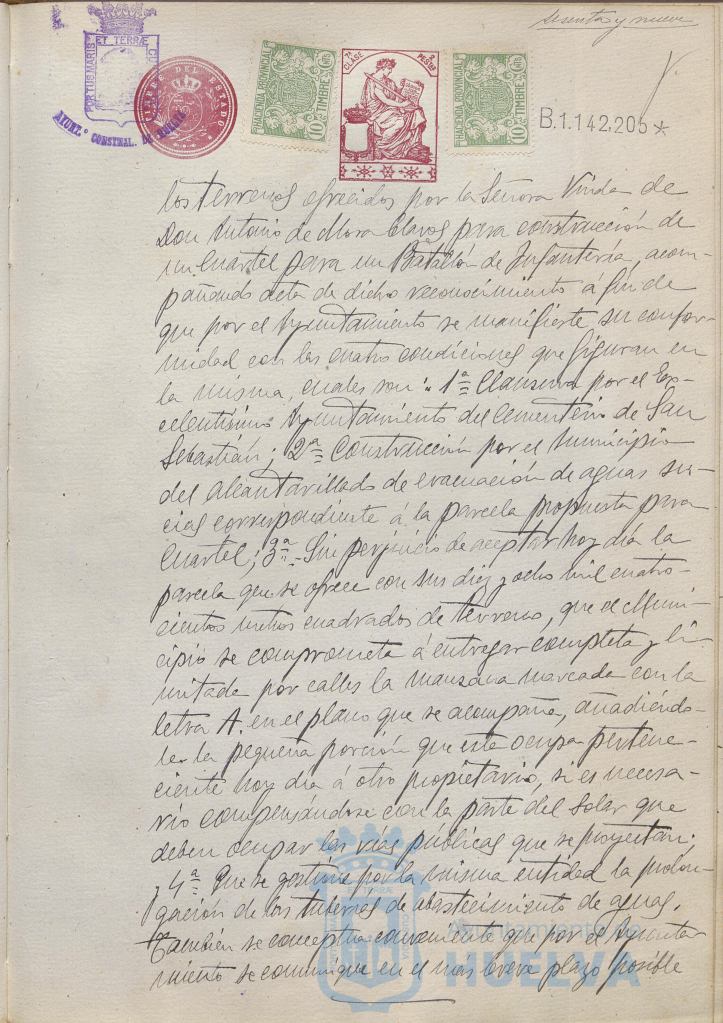 sesenta y nueve
PORTUS MARIS ET TERRÆ CUSTODIA
AYUNT.º CONSTNAL. DE HUELVA
TIMBRE DEL ESTADO
HACIENDA PROVINCIAL
TIMBRE
10 Cts
7ª CLASE
2 PESTAS
HACIENDA PROVINCIAL
TIMBRE
10 Cts
B.1.142.205*
los terrenos ofrecidos por la Señora Viuda de
Don Antonio de Mora Claros para construcción de
un Cuartel para un Batallón de Infantería, acom-
pañando acta de dicho reconocimiento á fin de
que por el Ayuntamiento se manifieste su confor-
midad con las cuatro condiciones que figuran en
la misma, cuales son: 1ª Clausura por el Ex-
celentísimo Ayuntamiento del Cementerio de San
Sebastián; 2ª Construcción por el Municipio
del alcantarillado de evacuación de aguas su-
cias correspondiente á la parcela propuesta para
Cuartel; 3ª - Sin perjuicio de aceptar hoy día la
parcela que se ofrece con sus diez y ocho mil cuatro-
cientos metros cuadrados de terreno, que el Muni-
cipio se comprometa á entregar completa y li-
mitada por calles la manzana marcada con la
letra A. en el plano que se acompaña, añadiéndo-
le la pequeña porción que este ocupa pertene-
ciente hoy día á otro propietario, si es necesa-
rio compensándose con la parte del solar que
deben ocupar las vías públicas que se proyectan.
y 4ª Que se gestione por la misma entidad la prolon-
gación de las tuberías de abastecimiento de aguas.
También se conceptua conveniente que por el Ayunta-
miento se comunique en el más breve plazo posible
Ayuntamiento de
HUELVA